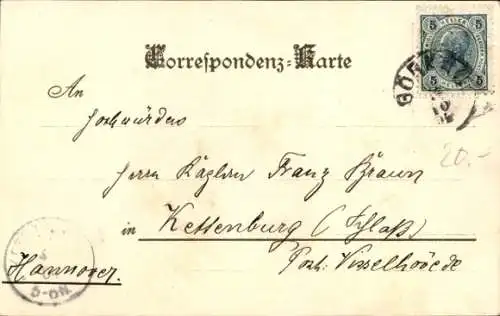 Correspondenz-Karte
An
Hochwürden
Herrn Kaplan Franz Braun
in Kettenburg (Schloß)
Post: Visselhövede
Hannover.
5-6N.
20.-
5 5
5 5